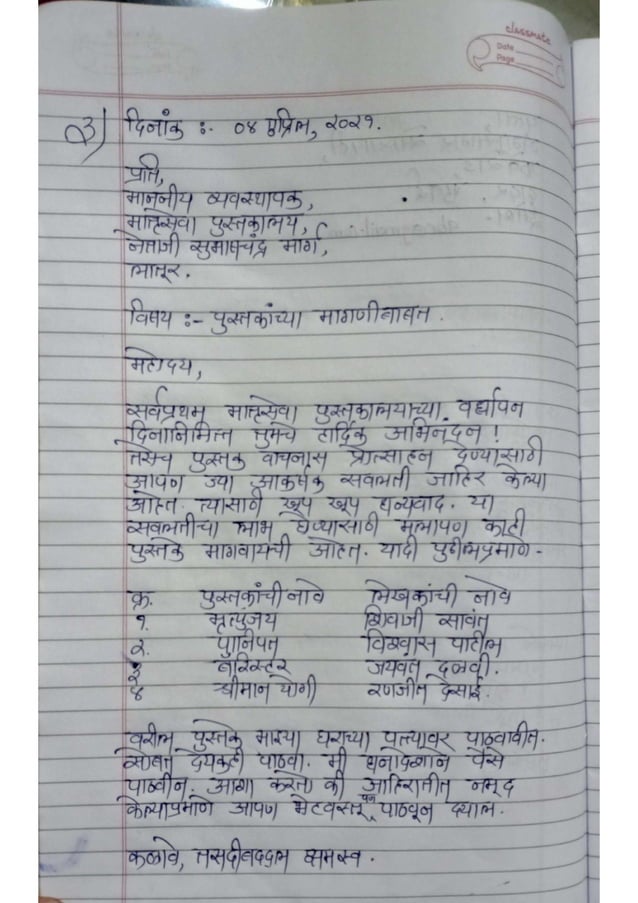 classmate
Date
Page
३) दिनांक :- ०४ एप्रिल, २०२१.
प्रति,
माननीय व्यवस्थापक,
मातृसेवा पुस्तकालय,
नेताजी सुभाषचंद्र मार्ग,
लातूर.
विषय :- पुस्तकांच्या मागणीबाबत.
महोदय,
सर्वप्रथम मातृसेवा पुस्तकालयाच्या वर्धापन
दिनानिमित्त तुमचे हार्दिक अभिनंदन !
तसेच पुस्तक वाचनास प्रोत्साहन देण्यासाठी
आपण ज्या आकर्षक सवलती जाहिर केल्या
आहेत. त्यासाठी खूप खूप धन्यवाद. या
सवलतीचा लाभ घेण्यासाठी मलापण काही
पुस्तके मागवायची आहेत. यादी पुढीलप्रमाणे-
क्र. पुस्तकांची नावे लेखकांची नावे
१. मृत्युंजय शिवाजी सावंत
२. पानिपत विश्वास पाटील
३ बॅरिस्टर जयवंत दळवी.
४ श्रीमान योगी रणजीत देसाई.
वरील पुस्तके माझ्या घराच्या पत्त्यावर पाठवावीत.
सोबत देयकही पाठवा. मी धनादेशाने पैसे
पाठवीन. आशा करतो की जाहिरातीत नमूद
केल्याप्रमाणे आपण भेटवस्तू पण पाठवून द्याल.
कळावे, तसदीबद्दल क्षमस्व.